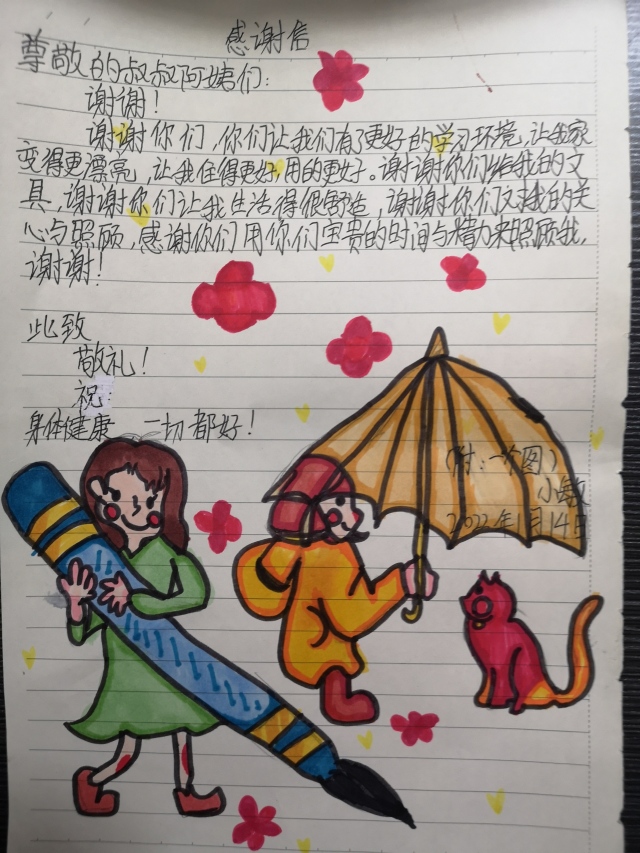 感谢信
尊敬的叔叔阿姨们:
谢谢!
谢谢你们,你们让我们有了更好的学习环境,让我家
变得更漂亮,让我住得更好,用的更好。谢谢你们给我的文
具,谢谢你们让我生活得很舒适,谢谢你们对我的关
心与照顾,感谢你们用你们宝贵的时间与精力来照顾我,
谢谢!
此致
敬礼!
祝:
身体健康 一切都好!
(附:一个图)
小敏
2022年1月14日